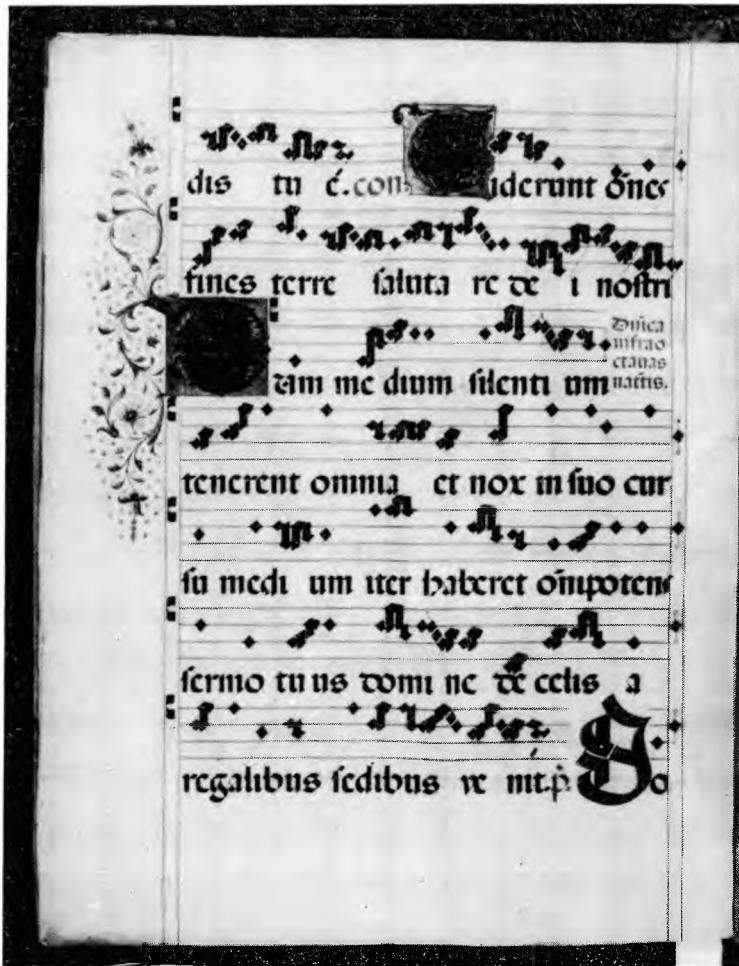 dis tu ē. con Viderunt oēs
fines terre saluta re de i nostri
Dnica
infra o
ctauas
natis.
Dum me dium silenti um
tenerent omnia et nox in suo cur
su medi um iter haberet oīpotens
sermo tu us domi ne de celis a
regalibus sedibus ve nit. p̄. Do